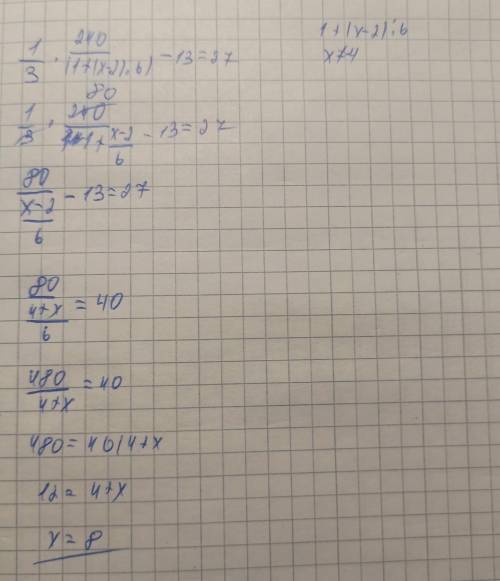 1/3 · 240/(1+(x-2):6) - 13 = 27
1+(x-2):6
x≠4
1/3 · 240/(1+(x-2)/6) - 13 = 27
80
80/((x-2)/6) - 13 = 27
80/((4+x)/6) = 40
480/(4+x) = 40
480 = 40(4+x
12 = 4+x
x = 8